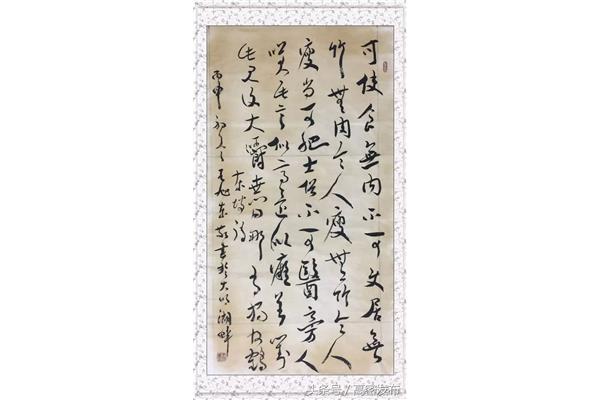 可使食無肉不可使居無
竹無肉令人瘦無竹令人
瘦尚可肥士俗不可醫旁人
笑此言似高還似癡若對
此君仍大嚼世間那有揚州鶴
東坡詩
丙申初冬東敬書於大明湖畔
头条号 / 高密发布